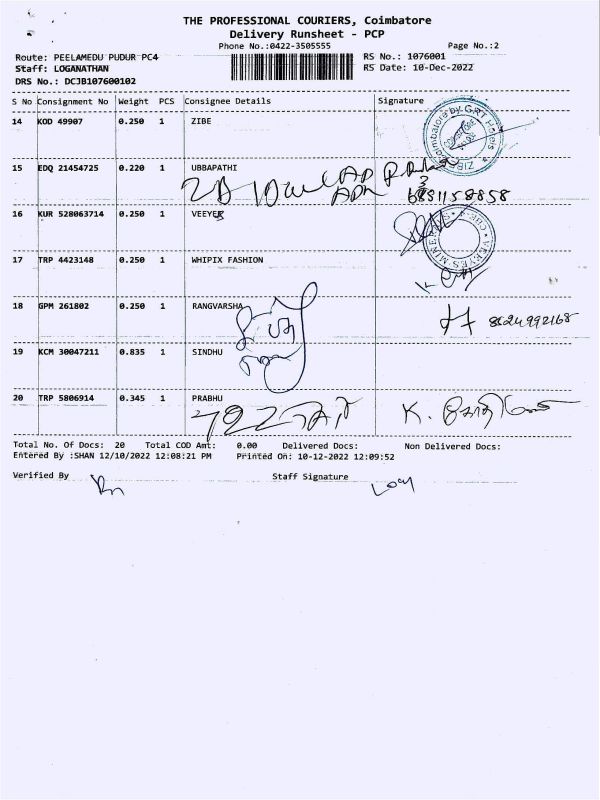 THE PROFESSIONAL COURIERS, Coimbatore
Delivery Runsheet - PCP
Phone No.:0422-3505555 Page No.:2
Route: PEELAMEDU PUDUR PC4 RS No.: 1076001
Staff: LOGANATHAN RS Date: 10-Dec-2022
DRS No.: DCJB107600102
S No Consignment No Weight PCS Consignee Details Signature
14 KOD 49907 0.250 1 ZIBE
Coimbatore by GRT Hotels
ZIBE
15 EDQ 21454725 0.220 1 UBBAPATHI
16 KUR 528063714 0.250 1 VEEYES
17 TRP 4423148 0.250 1 WHIPIX FASHION
18 GPM 261802 0.250 1 RANGVARSHA
8624992168
19 KCM 30047211 0.835 1 SINDHU
20 TRP 5806914 0.345 1 PRABHU
Total No. Of Docs: 20 Total COD Amt: 0.00 Delivered Docs: Non Delivered Docs:
Entered By :SHAN 12/10/2022 12:08:21 PM Printed On: 10-12-2022 12:09:52
Verified By Staff Signature